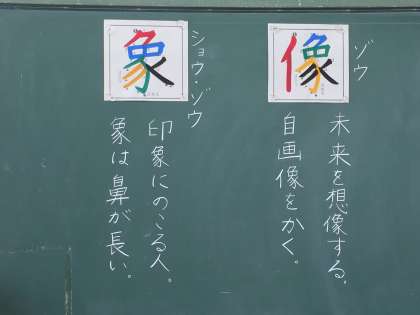 像
ゾウ
未来を想像する。
自画像をかく。
象
ショウ・ゾウ
印象にのこる人。
象は鼻が長い。